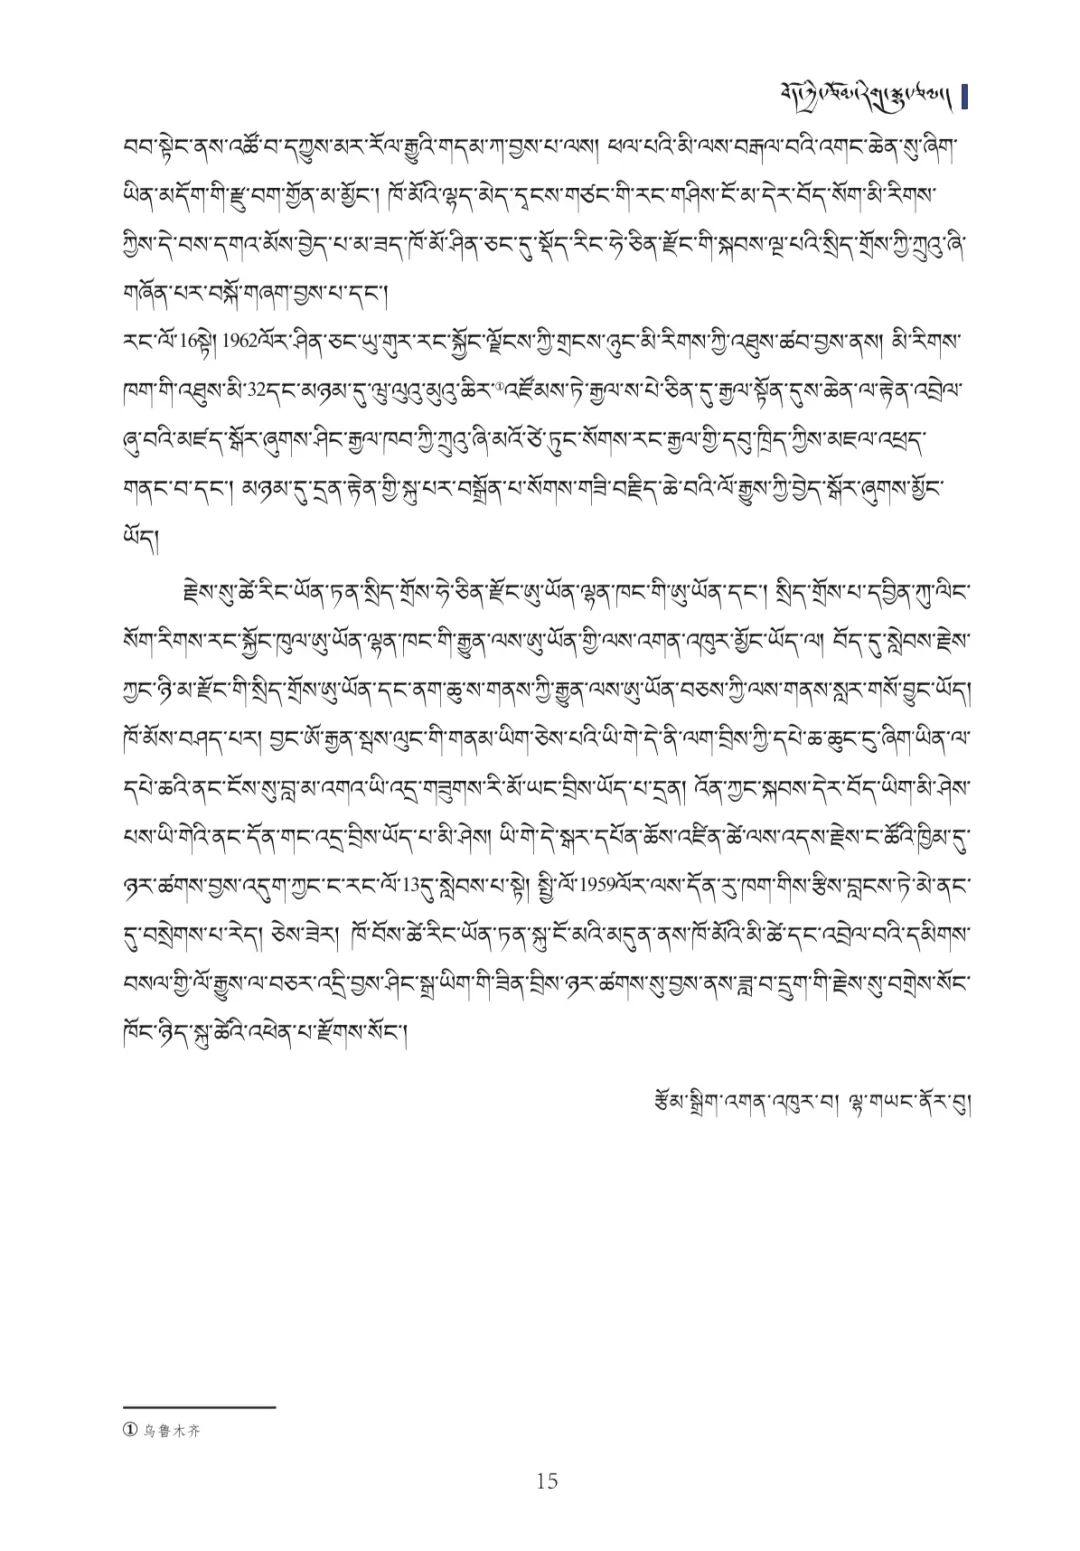 བབ་སྟེང་ནས་འཚོ་བ་དཀྱུས་མར་རོལ་རྒྱུའི་གདམ་ཀ་བྱས་པ་ལས། ཕལ་པའི་མི་ལས་བརྒལ་བའི་འགང་ཆེན་སུ་ཞིག་
ཡིན་མདོག་གི་རྫུ་བག་གྱོན་མ་མྱོང་། ཁོ་མོའི་ལྷད་མེད་དྭངས་གཙང་གི་རང་གཤིས་ངོ་མ་དེར་བོད་སོག་མི་རིགས་
ཀྱིས་དེ་བས་དགའ་མོས་བྱེད་པ་མ་ཟད་ཁོ་མོ་ཤིན་ཅང་དུ་སྡོད་རིང་ཧེ་ཅིན་རྫོང་གི་སྐབས་ལྔ་པའི་སྲིད་གྲོས་ཀྱི་ཀྲུའུ་ཞི་
གཞོན་པར་བསྐོ་གཞག་བྱས་པ་དང་།
རང་ལོ་16སྟེ། 1962ལོར་ཤིན་ཅང་ཡུ་གུར་རང་སྐྱོང་ལྗོངས་ཀྱི་གྲངས་ཉུང་མི་རིགས་ཀྱི་འཐུས་ཚབ་བྱས་ནས། མི་རིགས་
ཁག་གི་འཐུས་མི་32དང་མཉམ་དུ་ཝུ་ལུའུ་མུའུ་ཆིར་①འཛོམས་ཏེ་རྒྱལ་ས་པེ་ཅིན་དུ་རྒྱལ་སྟོན་དུས་ཆེན་ལ་རྟེན་འབྲེལ་
ཞུ་བའི་མཛད་སྒོར་ཞུགས་ཤིང་རྒྱལ་ཁབ་ཀྱི་ཀྲུའུ་ཞི་མའོ་ཙེ་ཏུང་སོགས་རང་རྒྱལ་གྱི་དབུ་ཁྲིད་ཀྱིས་མཇལ་འཕྲད་
གནང་བ་དང་། མཉམ་དུ་དྲན་རྟེན་གྱི་སྐུ་པར་བསྒྲོན་པ་སོགས་གཟི་བརྗིད་ཆེ་བའི་ལོ་རྒྱུས་ཀྱི་བྱེད་སྒོར་ཞུགས་མྱོང་
ཡོད།
རྗེས་སུ་ཚེ་རིང་ཡོན་ཏན་སྲིད་གྲོས་ཧེ་ཅིན་རྫོང་ཨུ་ཡོན་ལྷན་ཁང་གི་ཨུ་ཡོན་དང་། སྲིད་གྲོས་པ་དབྱིན་ཀུ་ལིང་
སོག་རིགས་རང་སྐྱོང་ཁུལ་ཨུ་ཡོན་ལྷན་ཁང་གི་རྒྱུན་ལས་ཨུ་ཡོན་གྱི་ལས་འགན་འཁུར་མྱོང་ཡོད་ལ། བོད་དུ་སླེབས་རྗེས་
ཀྱང་ཉི་མ་རྫོང་གི་སྲིད་གྲོས་ཨུ་ཡོན་དང་ནག་ཆུ་ས་གནས་ཀྱི་རྒྱུན་ལས་ཨུ་ཡོན་བཅས་ཀྱི་ལས་གནས་སླར་གསོ་བྱུང་ཡོད།
ཁོ་མོས་བཤད་པར། བྱང་ཨོ་རྒྱན་སྦས་ལུང་གི་གནམ་ཡིག་ཅེས་པའི་ཡི་གེ་དེ་ནི་ལག་བྲིས་ཀྱི་དཔེ་ཆ་ཆུང་དུ་ཞིག་ཡིན་ལ་
དཔེ་ཆའི་ནང་ངོས་སུ་བླ་མ་འགའ་ཡི་འདྲ་གཟུགས་རི་མོ་ཡང་བྲིས་ཡོད་པ་དྲན། འོན་ཀྱང་སྐབས་དེར་བོད་ཡིག་མི་ཤེས་
པས་ཡི་གེའི་ནང་དོན་གང་འདྲ་བྲིས་ཡོད་པ་མི་ཤེས། ཡི་གེ་དེ་སྒར་དཔོན་ཆོས་འཛིན་ཚེ་ལས་འདས་རྗེས་ང་ཚོའི་ཁྱིམ་དུ་
ཉར་ཚགས་བྱས་འདུག་ཀྱང་ང་རང་ལོ་13དུ་སླེབས་པ་སྟེ། སྤྱི་ལོ་1959ལོར་ལས་དོན་རུ་ཁག་གིས་རྩིས་བླངས་ཏེ་མེ་ནང་
དུ་བསྲེགས་པ་རེད། ཅེས་ཟེར། ཁོ་བོས་ཚེ་རིང་ཡོན་ཏན་སྐུ་ངོ་མའི་མདུན་ནས་ཁོ་མོའི་མི་ཚེ་དང་འབྲེལ་བའི་དམིགས་
བསལ་གྱི་ལོ་རྒྱུས་ལ་བཅར་འདྲི་བྱས་ཤིང་སྒྲ་ཡིག་གི་ཟིན་བྲིས་ཉར་ཚགས་སུ་བྱས་ནས་ཟླ་བ་དྲུག་གི་རྗེས་སུ་བགྲེས་སོང་
ཁོང་ཉིད་སྐུ་ཚེའི་འཕེན་པ་རྫོགས་སོང་།
རྩོམ་སྒྲིག་འགན་འཁུར་བ། ལྷ་གཡང་ནོར་བུ།
① 乌鲁木齐
15